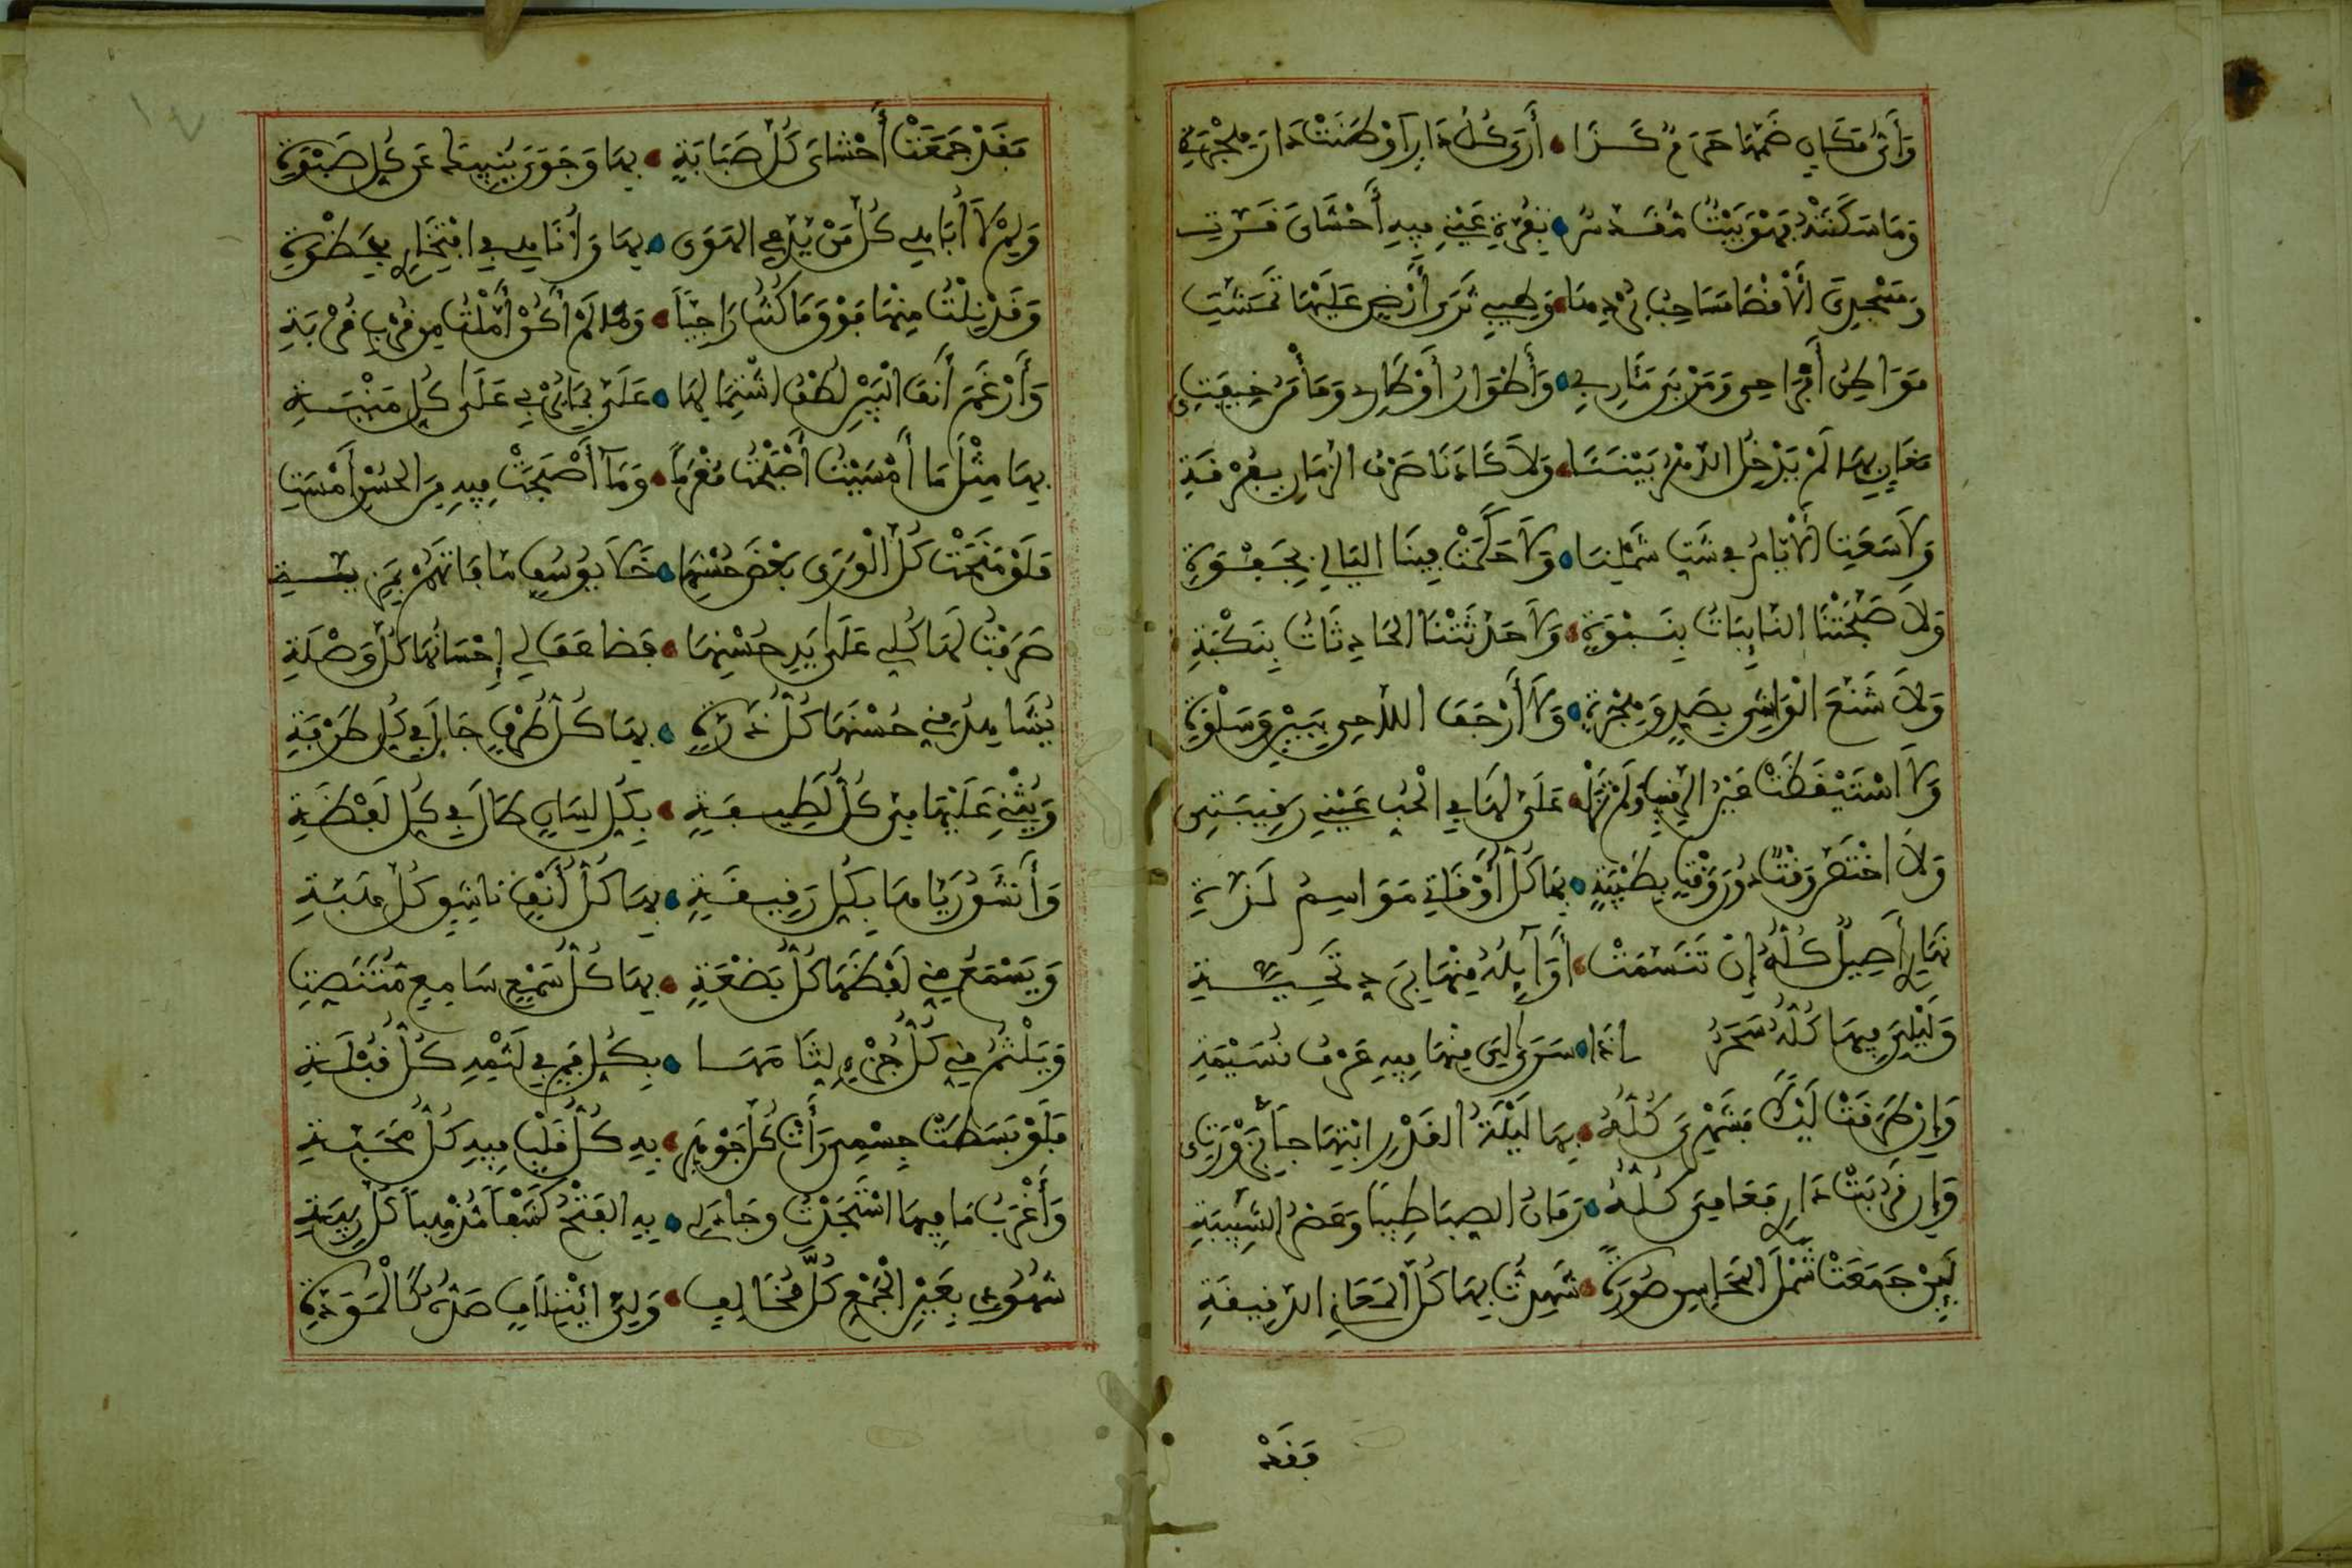 وَأَيُّ مَكَانٍ ضَمَّهَا حَرَمٌ كَذَا • أَرَى كُلَّ دَارٍ أَوْطَنَتْ دَارَ هِجْرَةِ
وَمَا سَكَنَتْهُ فَهْوَ بَيْتٌ مُقَدَّسٌ • بِقُرَّةِ عَيْنِي فِيهِ أَحْشَايَ قَرَّتِ
وَمَسْجِدِيَ الْأَقْصَا مَسَاحِبُ بُرْدِهَا • وَطِيبِي ثَرَى أَرْضٍ عَلَيْهَا تَمَشَّتِ
مَوَاطِنُ أَفْرَاحِي وَمَرْبَى مَآرِبِي • وَأَطْوَارُ أَوْطَارِي وَمَأْمَنُ خِيفَتِي
مَغَانٍ بِهَا لَمْ يَدْخُلِ الدَّهْرُ بَيْنَنَا • وَلَا كَادَنَا صَرْفُ الزَّمَانِ بِفُرْقَةِ
وَلَا سَعَتِ الْأَيَّامُ فِي شَتِّ شَمْلِنَا • وَلَا حَكَمَتْ فِينَا اللَّيَالِي بِجَفْوَةِ
وَلَا صَبَّحَتْنَا النَّائِبَاتُ بِنَبْوَةٍ • وَلَا حَدَّثَتْنَا الْحَادِثَاتُ بِنَكْبَةِ
وَلَا شَنَّعَ الْوَاشِي بِصَدٍّ وَهِجْرَةٍ • وَلَا أَرْجَفَ اللَّاحِي بِبَيْنٍ وَسَلْوَةِ
وَلَا اسْتَيْقَظَتْ عَيْنُ الرَّقِيبِ وَلَمْ تَزَلْ • عَلَيَّ لَهَا فِي الْحُبِّ عَيْنِي رَقِيبَتِي
وَلَا اخْتَصَّ وَقْتٌ دُونَ وَقْتٍ بِطَيْبَةٍ • بِهَا كُلُّ أَوْقَاتِي مَوَاسِمُ لَذَّةِ
نَهَارِي أَصِيلٌ كُلُّهُ إِنْ تَنَسَّمَتْ • أَوَائِلُهُ مِنْهَا بِرَدِّ تَحِيَّةِ
وَلَيْلِيَ فِيهَا كُلُّهُ سَحَرٌ إِذَا • سَرَى لِيَ مِنْهَا فِيهِ عَرْفُ نُسَيْمَةِ
وَإِنْ طَرَقَتْ لَيْلًا فَشَهْرِيَ كُلُّهُ • بِهَا لَيْلَةُ الْقَدْرِ ابْتِهَاجًا بِزَوْرَتِي
وَإِنْ قَرُبَتْ دَارِي فَعَامِيَ كُلُّهُ • زَمَانُ الصِّبَا طِيبًا وَعَصْرُ الشَّبِيبَةِ
لَئِنْ جَمَعَتْ شَمْلَ الْمَحَاسِنِ صُورَةً • شَهِدْتُ بِهَا كُلَّ الْمَعَانِي الدَّقِيقَةِ
فَقَدْ
فَقَدْ جَمَعَتْ أَحْشَايَ كُلَّ صَبَابَةٍ • بِهَا وَجَوًى يُنْبِيكَ عَنْ كُلِّ صَبْوَةِ
وَلِمْ لَا أُبَاهِي كُلَّ مَنْ يَدَّعِي الْهَوَى • بِهَا وَأُنَاهِي فِي افْتِخَارِي بِحَظْوَةِ
وَقَدْ نِلْتُ مِنْهَا فَوْقَ مَا كُنْتُ رَاجِيًا • وَمَا لَمْ أَكُنْ أَمَّلْتُ مِنْ قُرْبِ قُرْبَةِ
وَأَرْغَمَ أَنْفَ الْبَيْنِ لُطْفُ اشْتِمَالِهَا • عَلَيَّ بِمَا يُرْبِي عَلَى كُلِّ مُنْيَةِ
بِهَا مِثْلَ مَا أَمْسَيْتُ أَصْبَحْتُ مُغْرَمًا • وَمَا أَصْبَحَتْ فِيهِ مِنَ الْحُسْنِ أَمْسَتِ
فَلَوْ مَنَحَتْ كُلَّ الْوَرَى بَعْضَ حُسْنِهَا • خَلَا يُوسُفٍ مَا فَاتَهُمْ بِمَزِيَّةِ
صَرَفْتُ لَهَا كُلِّي عَلَى يَدِ حُسْنِهَا • فَضَاعَفَ لِي إِحْسَانُهَا كُلَّ وَصْلَةِ
يُشَاهِدُ مِنِّي حُسْنَهَا كُلُّ ذَرَّةٍ • بِهَا كُلُّ طَرْفٍ جَالَ فِي كُلِّ طَرْفَةِ
وَيُثْنِي عَلَيْهَا مِنِّي كُلُّ لَطِيفَةٍ • بِكُلِّ لِسَانٍ طَالَ فِي كُلِّ لَفْظَةِ
وَأَنْشَقُ رَيَّاهَا بِكُلِّ رَقِيقَةٍ • بِهَا كُلُّ أَنْفٍ نَاشِقٍ كُلَّ هَبَّةِ
وَيَسْمَعُ مِنِّي لَفْظَهَا كُلُّ بَضْعَةٍ • بِهَا كُلُّ سَمْعٍ سَامِعٍ مُتَنَصِّتِ
وَيَلْثِمُ مِنِّي كُلُّ جُزْءٍ لِثَامَهَا • بِكُلِّ فَمٍ فِي لَثْمِهِ كُلُّ قُبْلَةِ
فَلَوْ بَسَطَتْ جِسْمِي رَأَتْ كُلَّ جَوْهَرٍ • بِهِ كُلُّ قَلْبٍ فِيهِ كُلُّ مَحَبَّةِ
وَأَغْرَبُ مَا فِيهَا اسْتَجَدْتُ وَجَادَ لِي • بِهِ الْفَتْحُ كَشْفًا مُذْهِبًا كُلَّ رِيبَةِ
شُهُودِي بِعَيْنِ الْجَمْعِ كُلَّ مُخَالِفٍ • وَلِيَّ ائْتِلَافٍ صَدُّهُ كَالْمَوَدَّةِ